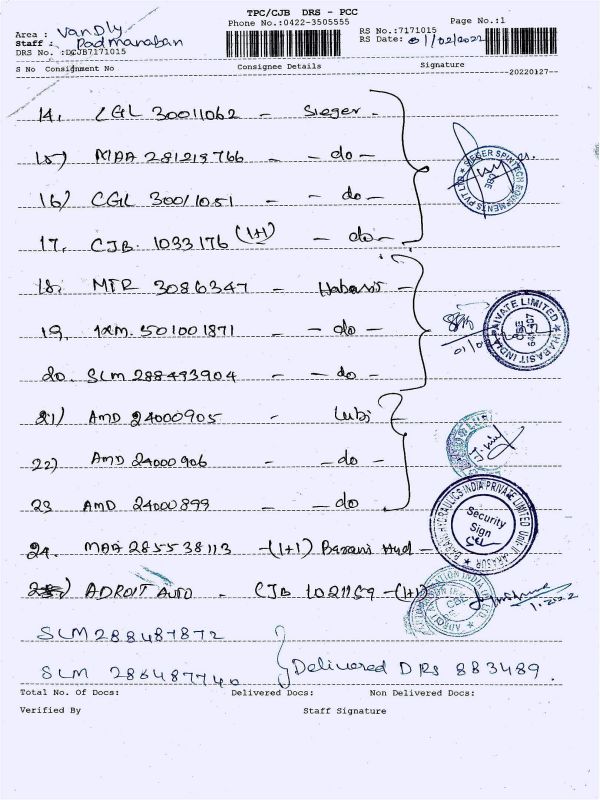 TPC/CJB DRS - PCC
Phone No.:0422-3505555
Page No.:1
Area : VanDly
Staff : Padmanaban
DRS No. :DCJB7171015
RS No.:7171015
RS Date: 01/02/2022
S No Consignment No Consignee Details Signature
--20220127--
14. CGL 30011062 - Sieger -
15) MAA 281219766 - - do -
16) CGL 30011051 - - do -
17. CJB. 1033176 (1+1) - do -
18. MTR 3086347 - Habasit -
19. 501001871 - do -
20. SLM 288493904 - - do -
21) AMD 24000905 - Lubi
22) AMD 24000906 - - do -
23 AMD 24000899 - - do
24. MAA 285538113 -(1+1) Barani Hyd -
ADROIT AUTO - CJB 1021159 -(1+1)
SLM 288487872
SLM 286487740 Delivered DRS 883489.
SIEGER SPINTECH EQUIPMENTS PVT LTD
CBE
HABASIT INDIA PRIVATE LIMITED
CBE
641 407
BARANI HYDRAULICS INDIA PRIVATE LIMITED UNIT II
Security
Sign
Total No. Of Docs: Delivered Docs: Non Delivered Docs:
Verified By Staff Signature